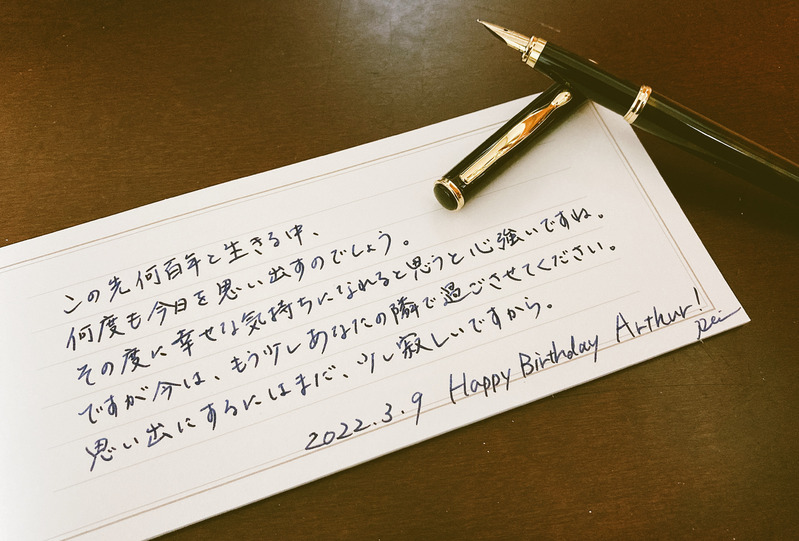 この先何百年と生きる中、
何度も今日を思い出すのでしょう。
その度に幸せな気持ちになれると思うと心強いですね。
ですが今は、もう少しあなたの隣で過ごさせてください。
思い出にするにはまだ、少し寂しいですから。
2022.3.9 Happy Birthday Arthur!
Rei